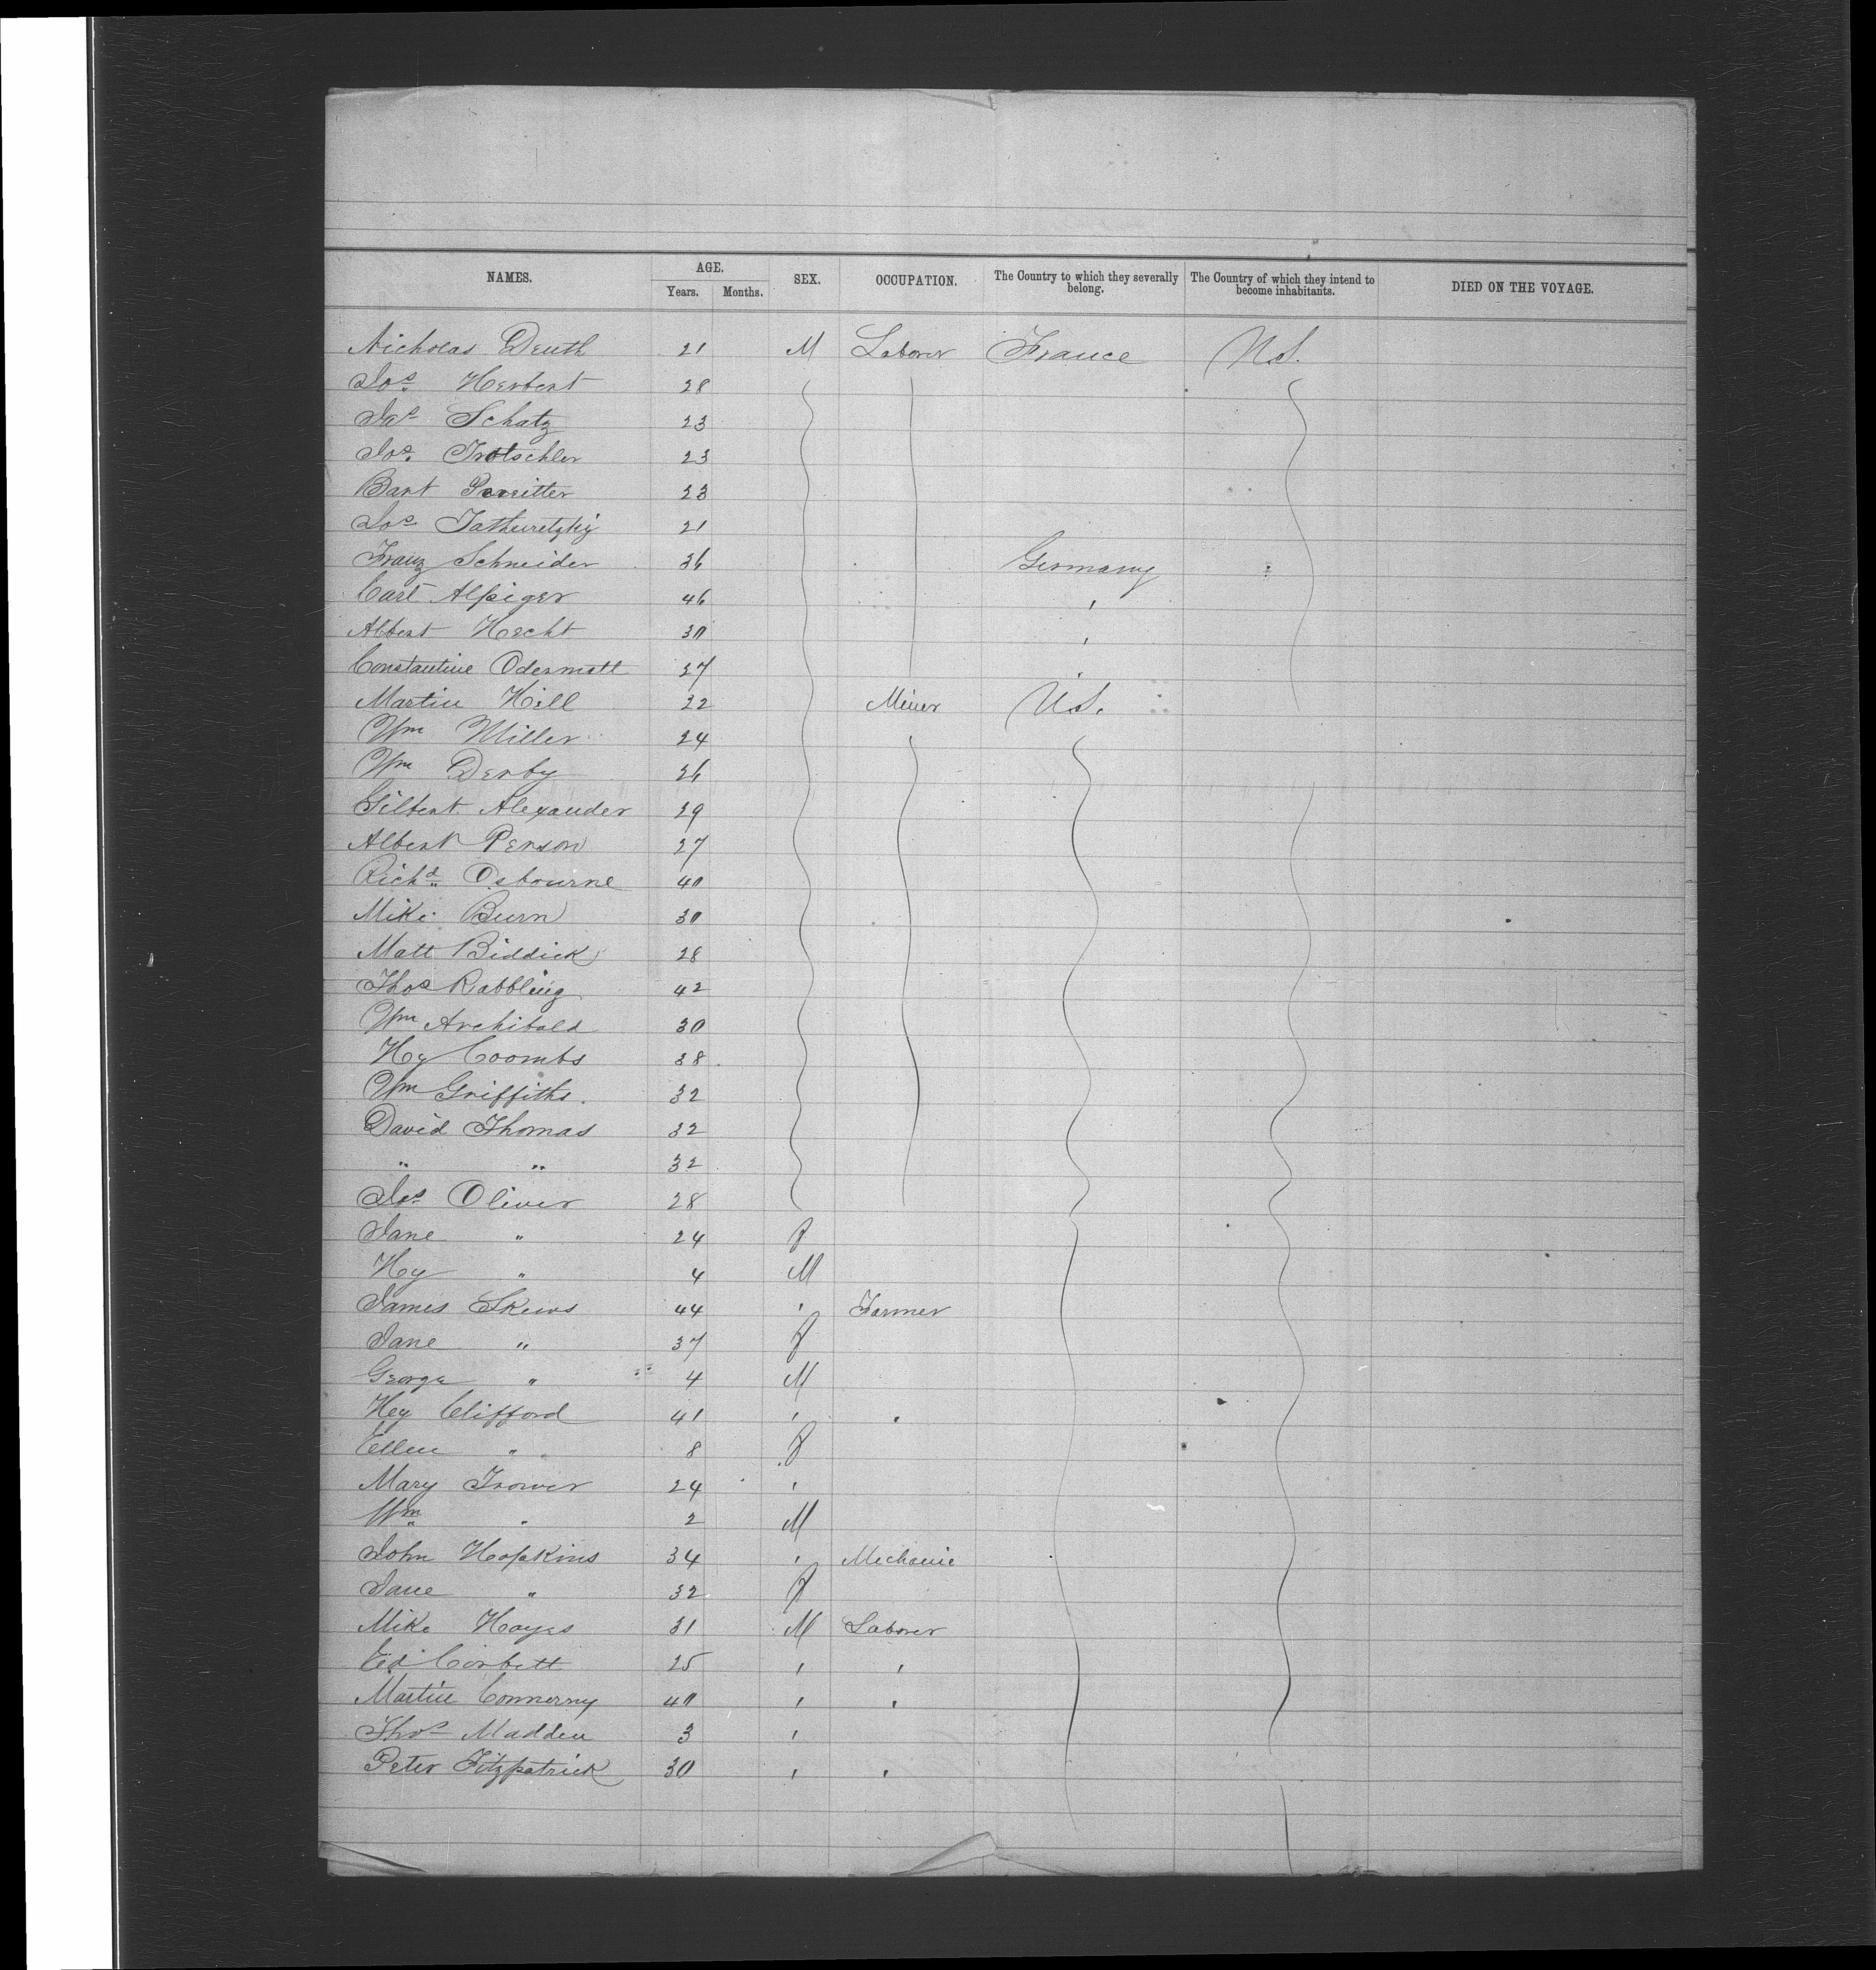 NAMES. AGE. SEX. OCCUPATION. The Country to which they severally belong. The Country of which they intend to become inhabitants. DIED ON THE VOYAGE.
Years. Months.
Nicholas Deuth 21 M Laborer France U.S.
Jos Herbert 28
Jas Schatz 23
Jos. Trotschler 23
Bart 23
Jos 21
Franz Schneider 36 Germany
Carl Alpiger 46 "
Albert Hecht 30 "
Constantine Odermatt 27 "
Martin Hill 22 Miner U.S.
Wm Miller 24
Wm Derby 26
Gilbert Alexander 29
Albert Person 27
Richd Osbourne 40
Mike Burn 30
Matt Biddick 28
Thos Rabbling 42
Wm Archibald 30
Hy Coombs 38
Wm Griffiths. 32
David Thomas 32
" " 32
Jas Oliver 28
Jane " 24 F
Hy " 4 M
James Skews 44 " Farmer
Jane " 37 F
George " 4 M
Hy Clifford 41 " "
Ellen " 8 F
Mary Trower 24 "
Wm " 2 M
John Hopkins 34 " Mechanic
Jane " 32 F
Mike Hayes 31 M Laborer
Ed Corbett 25 " "
Martin Connerny 40 " "
Thos Madden 3 "
Peter Fitzpatrick 30 " "